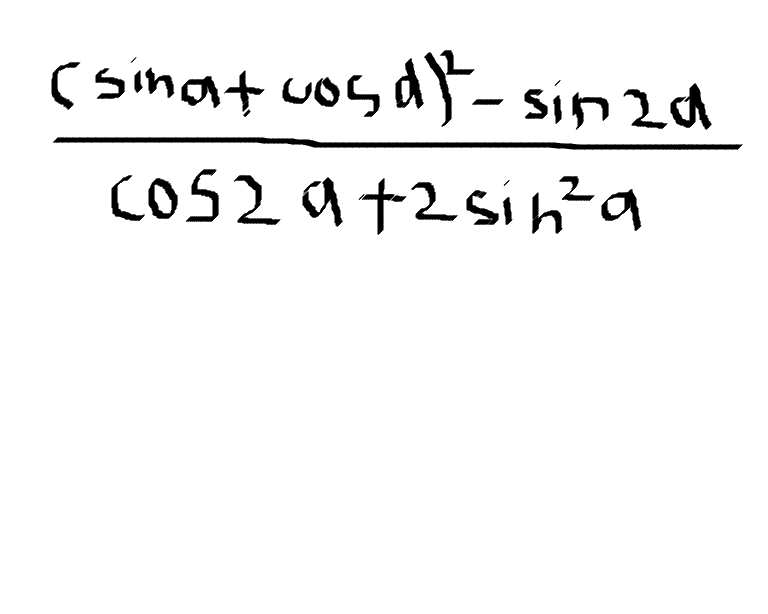 (sina+cosa)²-sin2a
cos2a+2sin²a